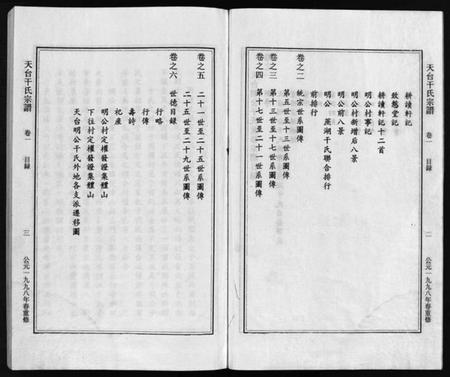 天台干氏宗譜 卷一 目錄 二 公元一九九八年春重修
耕讀軒記
致愨堂記
耕讀軒記十二首
明公村事記
明公村新增后八景
明公前八景
明公 蕪湖干氏聯合排行
前排行
卷之二 統宗世系圖傳
第五世至十三世系圖傳
卷之三 十三世至十七世系圖傳
卷之四 第十七世至二十一世系圖傳
卷之五 二十一世至二十五世系圖傳
二十五世至二十九世系圖傳
卷之六 世德目錄
行略
行傳
壽詩
祀產
明公村定權發證集體山
下往村定權發證集體山
天台明公干氏外地各支派遷移圖
天台干氏宗譜 卷一 目錄 三 公元一九九八年春重修